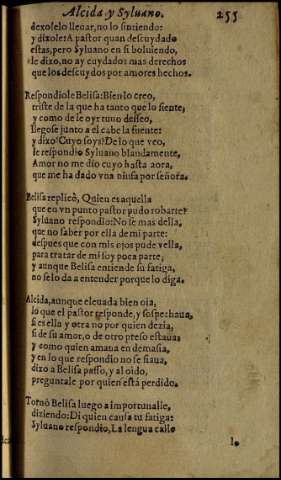 Alcida y Syluano. 255
dexoſelo lleuar, no lo ſintiendo:
y dixole: A paſtor quan deſcuydado
eſtas, pero Syluano en ſi boluiendo,
le dixo, no ay cuydados mas derechos
que los deſcuydos por amores hechos.
Reſpondiole Beliſa: Bien lo creo,
triſte de la que ha tanto que lo ſiente,
y como de le oyr tuuo deſſeo,
llegoſe junto a el cabe la fuente:
y dixo: Cuyo ſoys? De lo que veo,
le reſpondio Syluano blandamente,
Amor no me dio cuyo haſta aora,
que me ha dado vna ninfa por ſeñora.
Beliſa replicò, Quien es aquella
que en vn punto paſtor pudo robarte?
Syluano reſpondio: No ſe mas della,
que no ſaber por ella de mi parte:
deſpues que con mis ojos pude vella,
para tratar de mi ſoy poca parte,
y aunque Beliſa entiende ſu fatiga,
no ſe lo da a entender porque lo diga.
Alcida, aunque eleuada bien oia,
lo que el paſtor reſponde, y ſoſpechaua,
ſi es ella y otra no por quien dezia,
ſi de ſu amor, o de otro preſo eſtaua:
y como quien amaua en demaſia,
y en lo que reſpondio no ſe fiaua,
dixo a Beliſa paſſo, y al oido,
preguntale por quien eſtà perdido.
Tornò Beliſa luego a importunalle,
diziendo: Di quien cauſa tu fatiga:
Syluano reſpondio, La lengua calle
lo